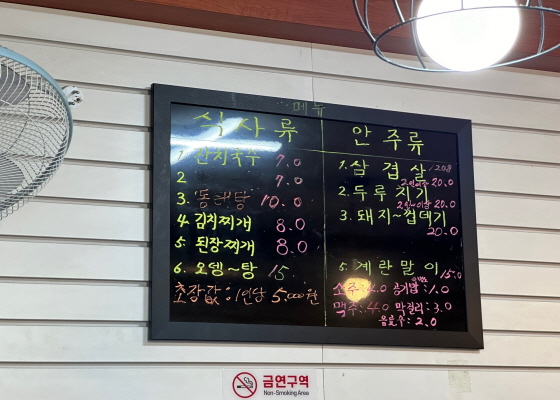 메뉴
식사류
1. 잔치국수 7.0
2. 7.0
3. 동래탕 10.0
4. 김치찌개 8.0
5. 된장찌개 8.0
6. 오뎅~탕 15
초장값 1인당 5,000원
안주류
1. 삼겹살
20.0
2. 두루지기
20.0
3. 돼지~껍데기
20.0
5. 계란말이 15.0
소주: 4.0 공기밥: 1.0
맥주: 4.0 막걸리: 3.0
음료수: 2.0
금연구역
Non-Smoking Area